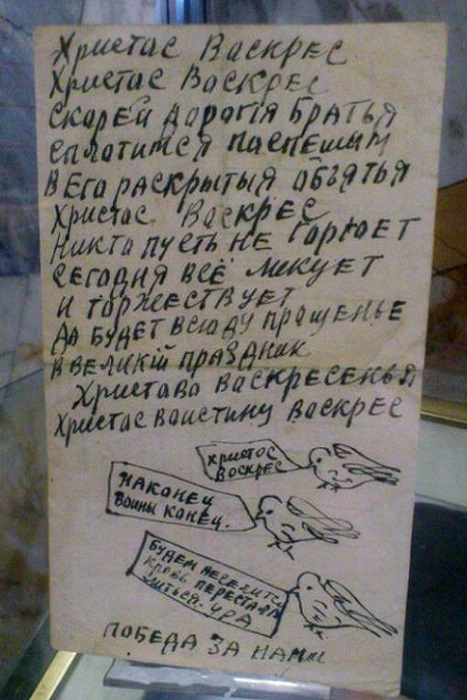 Христас Васкрес
Христас Васкрес
скарей дарагiя братья
сплатимся паспешым
в Его раскрытыя объятья
Христас Васкрес
Никта пусть не гарюет
сегодня всё ликует
и торжествует
да будет всюду пращенье
в великiй праздник
Христава васкресенья
Христас ваистину васкрес
Христос
воскрес
наканец
войны конец.
будем веселитс
кровь перестала
литься. ура
Победа за нами